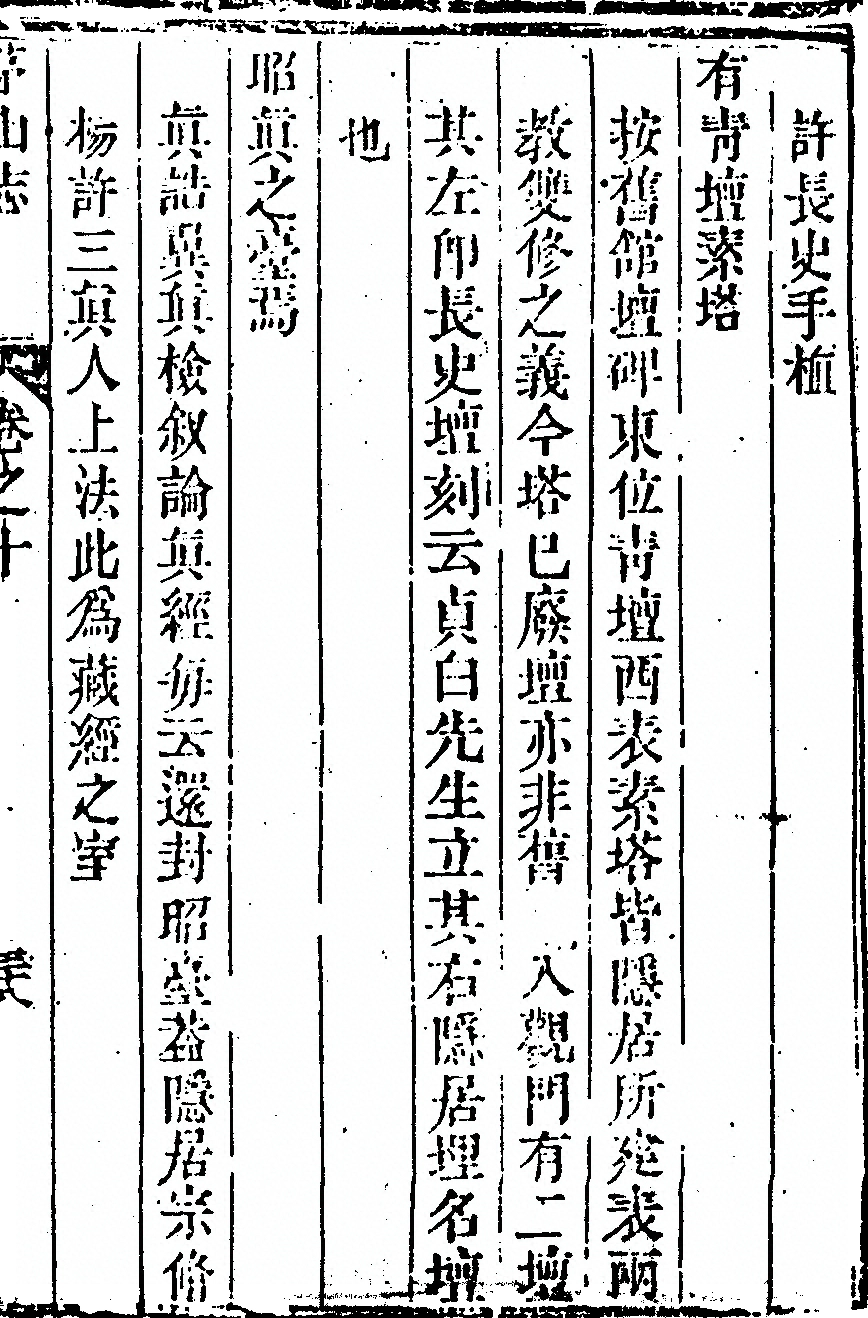 許長史手植
有青壇素塔
按舊館壇碑東位青壇西表素塔皆隱居所建表兩
教雙修之義今塔已廢壇亦非舊　入觀門有二壇
其左卯長史壇刻云貞白先生立其右隱居埋名壇
也
昭真之臺焉
真誥異真檢敘論真經每云還封昭臺葢隱居宗脩
楊許三真人上法此為藏經之室
茅山志
卷之十